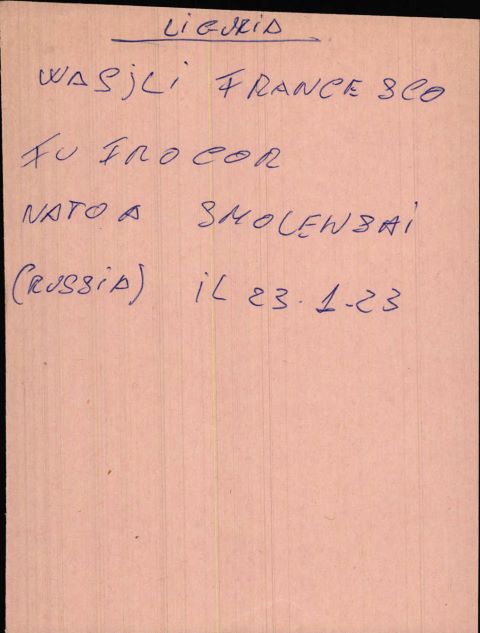 LIGURIA
WASJLI FRANCESCO
FU FROCOR
NATO A SMOLENSAI
(RUSSIA) IL 23.1-23